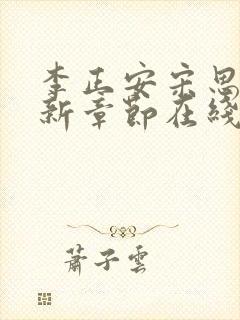 李正安宋思
新章節在綫
蕭子雲